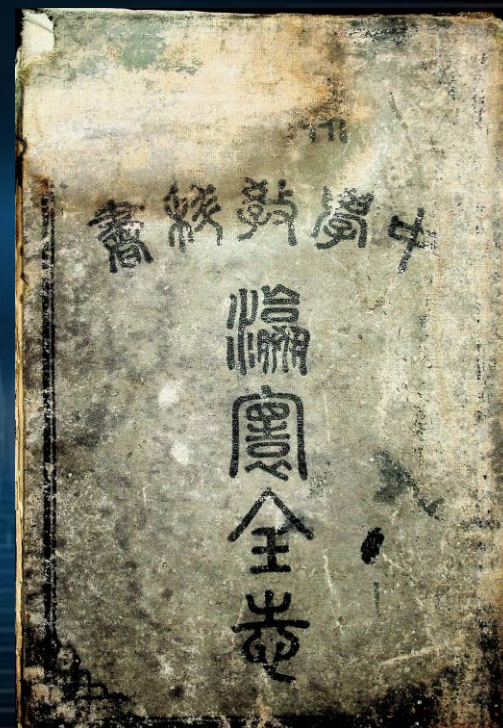 中學教科書
瀛寰全志